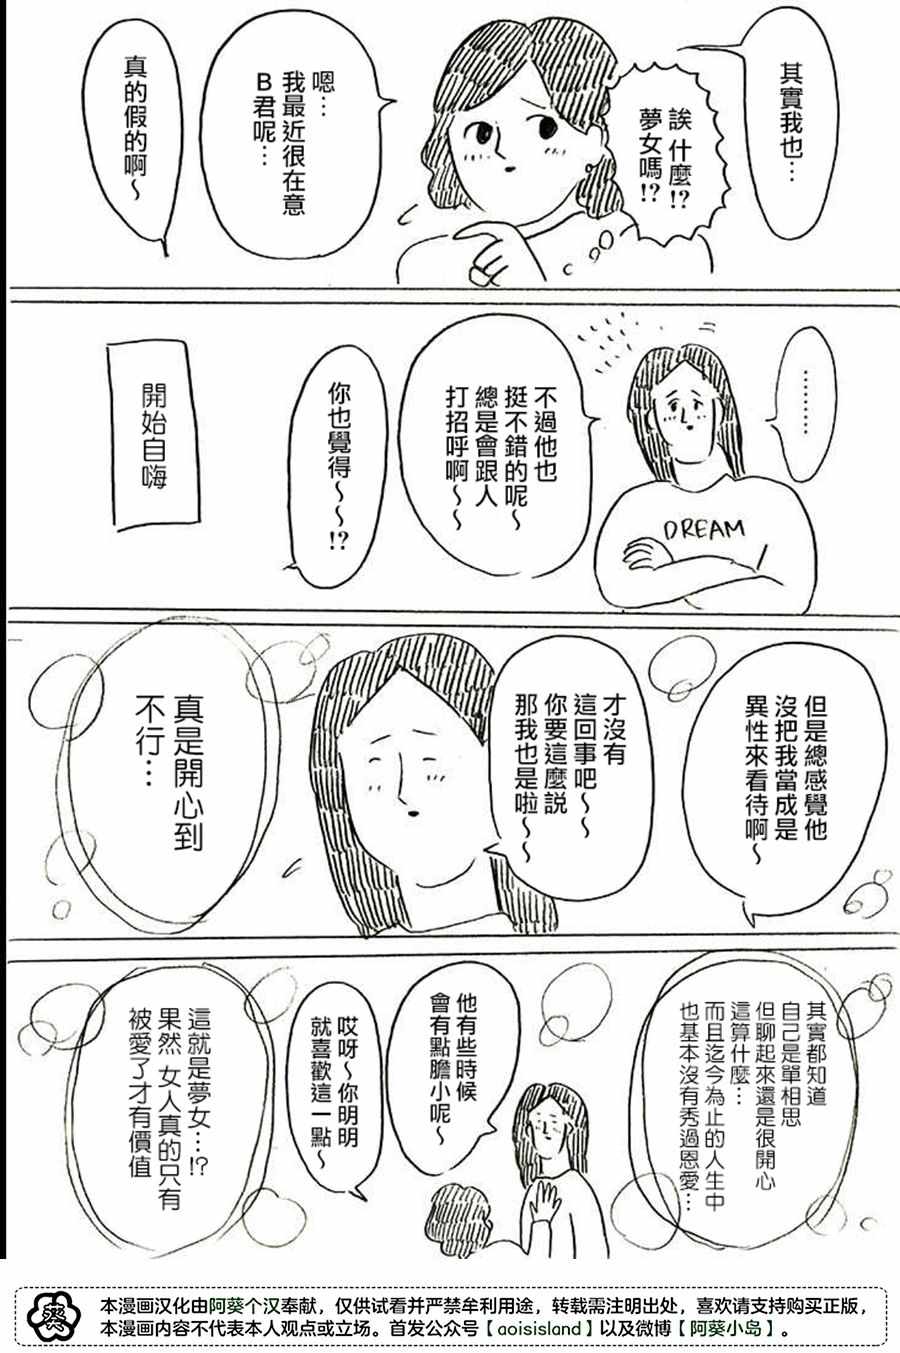 其實我也…
誒 什麼!?
夢女嗎!?
嗯…
我最近很在意
B君呢…
真的假的啊～
………
DREAM
不過他也
挺不錯的呢～
總是會跟人
打招呼啊～～
你也覺得～～!?
開始自嗨
但是總感覺他
沒把我當成是
異性來看待啊～
才沒有
這回事吧～
你要這麼說
那我也是啦～
真是開心到
不行…
其實都知道
自己是單相思
但聊起來還是很開心
這算什麼…
而且迄今為止的人生中
也基本沒有秀過恩愛…
他有些時候
會有點膽小呢～
哎呀～你明明
就喜歡這一點～
這就是夢女…!?
果然 女人真的只有
被愛了才有價值
葵
本漫画汉化由阿葵个汉奉献，仅供试看并严禁牟利用途，转载需注明出处，喜欢请支持购买正版，
本漫画内容不代表本人观点或立场。首发公众号【aoisisland】以及微博【阿葵小岛】。